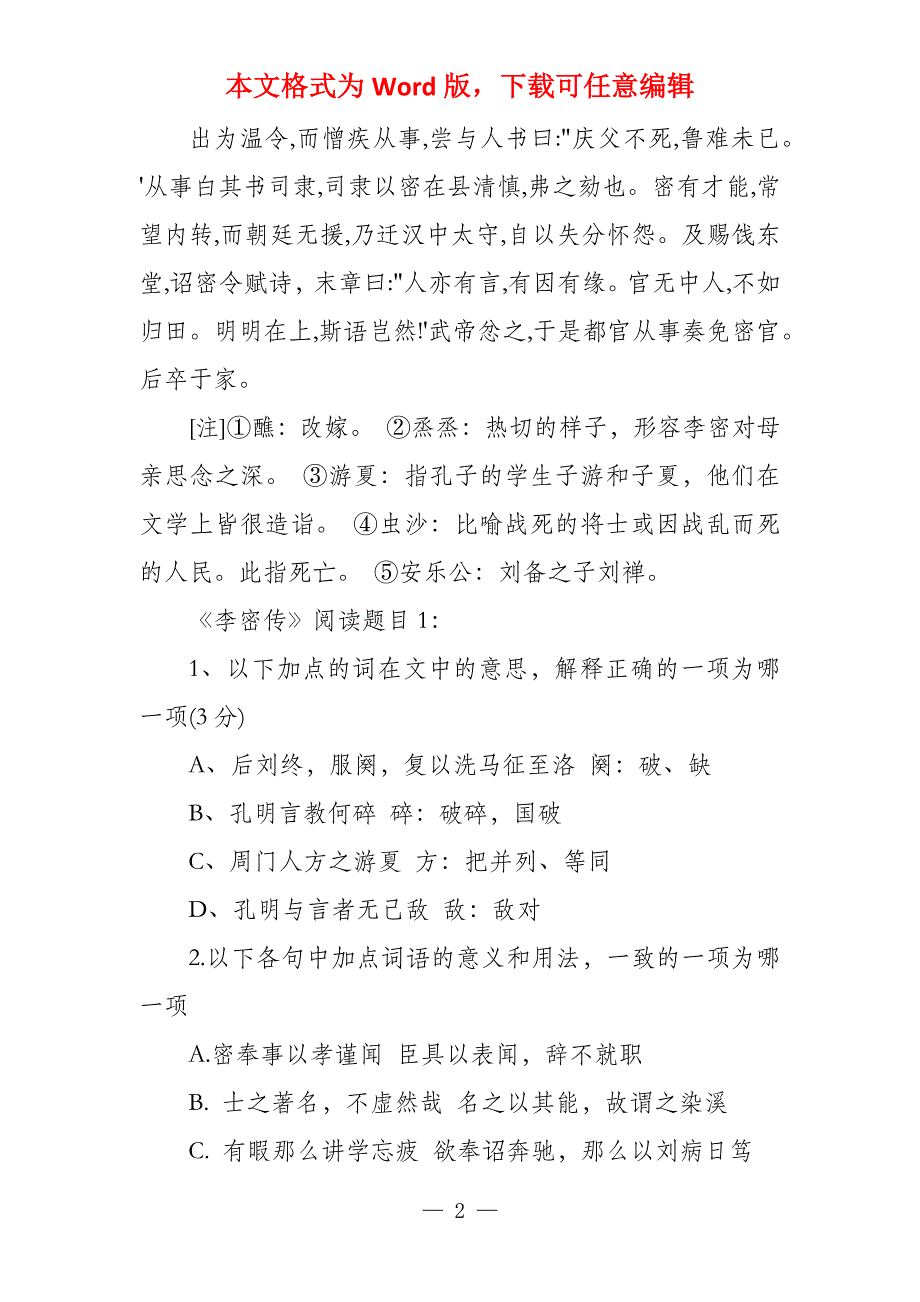 本文格式为 Word 版，下载可任意编辑
出为温令,而憎疾从事,尝与人书曰:"庆父不死,鲁难未已。
'从事白其书司隶,司隶以密在县清慎,弗之劾也。密有才能,常
望内转,而朝廷无援,乃迁汉中太守,自以失分怀怨。及赐饯东
堂,诏密令赋诗，末章曰:"人亦有言,有因有缘。官无中人,不如
归田。明明在上,斯语岂然!'武帝忿之,于是都官从事奏免密官。
后卒于家。
[注]①醮：改嫁。 ②烝烝：热切的样子，形容李密对母
亲思念之深。 ③游夏：指孔子的学生子游和子夏，他们在
文学上皆很造诣。 ④虫沙：比喻战死的将士或因战乱而死
的人民。此指死亡。 ⑤安乐公：刘备之子刘禅。
《李密传》阅读题目1：
1、以下加点的词在文中的意思，解释正确的一项为哪
一项(3分)
A、后刘终，服阕，复以洗马征至洛 阕：破、缺
B、孔明言教何碎 碎：破碎，国破
C、周门人方之游夏 方：把并列、等同
D、孔明与言者无己敌 敌：敌对
2.以下各句中加点词语的意义和用法，一致的一项为哪
一项
A.密奉事以孝谨闻 臣具以表闻，辞不就职
B. 士之著名，不虚然哉 名之以其能，故谓之染溪
C. 有暇那么讲学忘疲 欲奉诏奔驰，那么以刘病日笃
— 2 —